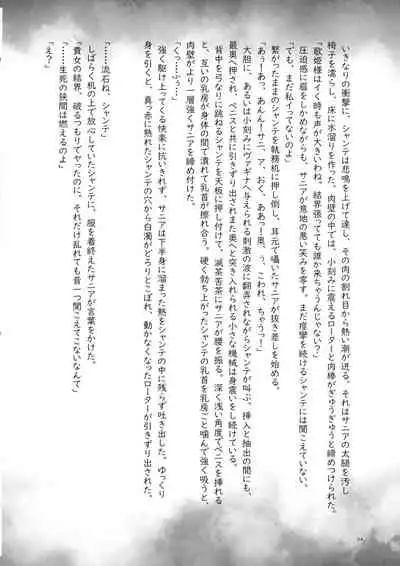 いきなりの衝撃に、シャンテは悲鳴を上げて達し、その肉の割れ目から熱い潮が迸る。それはサニアの太腿を汚し
椅子を濡らし、床に水溜りを作った。肉壁の中では、小刻みに震えるローターと肉棒がぎゅうぎゅうと締めつけられた。
「歌姫様はイく時も声が大きいわね。結界張ってても誰か来ちゃうんじゃない？」
圧迫感に眉をしかめながらも、サニアが意地の悪い笑みを零す。まだ痙攣を続けるシャンテには聞こえていない。
「でも、まだ私イってないのよ」
繋がったままのシャンテを執務机に押し倒し、耳元で囁いたサニアが抜き差しを始める。
「あぅーあっ、あんん！サニ、ア、おく、ああっ！奥、っ、こわれ、ちゃうっー！」
大胆に、あるいは小刻みにヴァギナへ与えられる刺激の波に翻弄されながらシャンテが叫ぶ。挿入と抽出の間にも、
最奥へ押され、ペニスと共に引きずり出されまた奥へと突き入れられる小さな機械は身震いをし続けている。
背中を弓なりに跳ねるシャンテを天板に押し付けて、滅茶苦茶にサニアが腰を振る。深く浅い角度でペニスを挿れる
と、互いの乳房が身体の間で潰れて乳首が擦れ合う。硬く勃ち上がったシャンテの乳首を乳房ごと噛んで強く吸うと、
肉壁がより一層強くサニアを締め付けた。
「くっ…ふぅ…」
強く駆け上ってくる快楽に抗いきれず、サニアは下半身に溜まった熱をシャンテの中に残らず吐き出した。ゆっくり
身を引くと、真っ赤に熟れたシャンテの穴から白濁がどろりとこぼれ、動かなくなったローターが引きずり出された。
「……流石ね、シャンテ」
しばらく机の上で放心していたシャンテに、服を着終えたサニアが言葉をかけた。
「貴女の結界、破るつもりでやったのに、それだけ乱れても音一つ聞こえてこないなんて」
「……生死の狭間は燃えるのよ」
「え？」